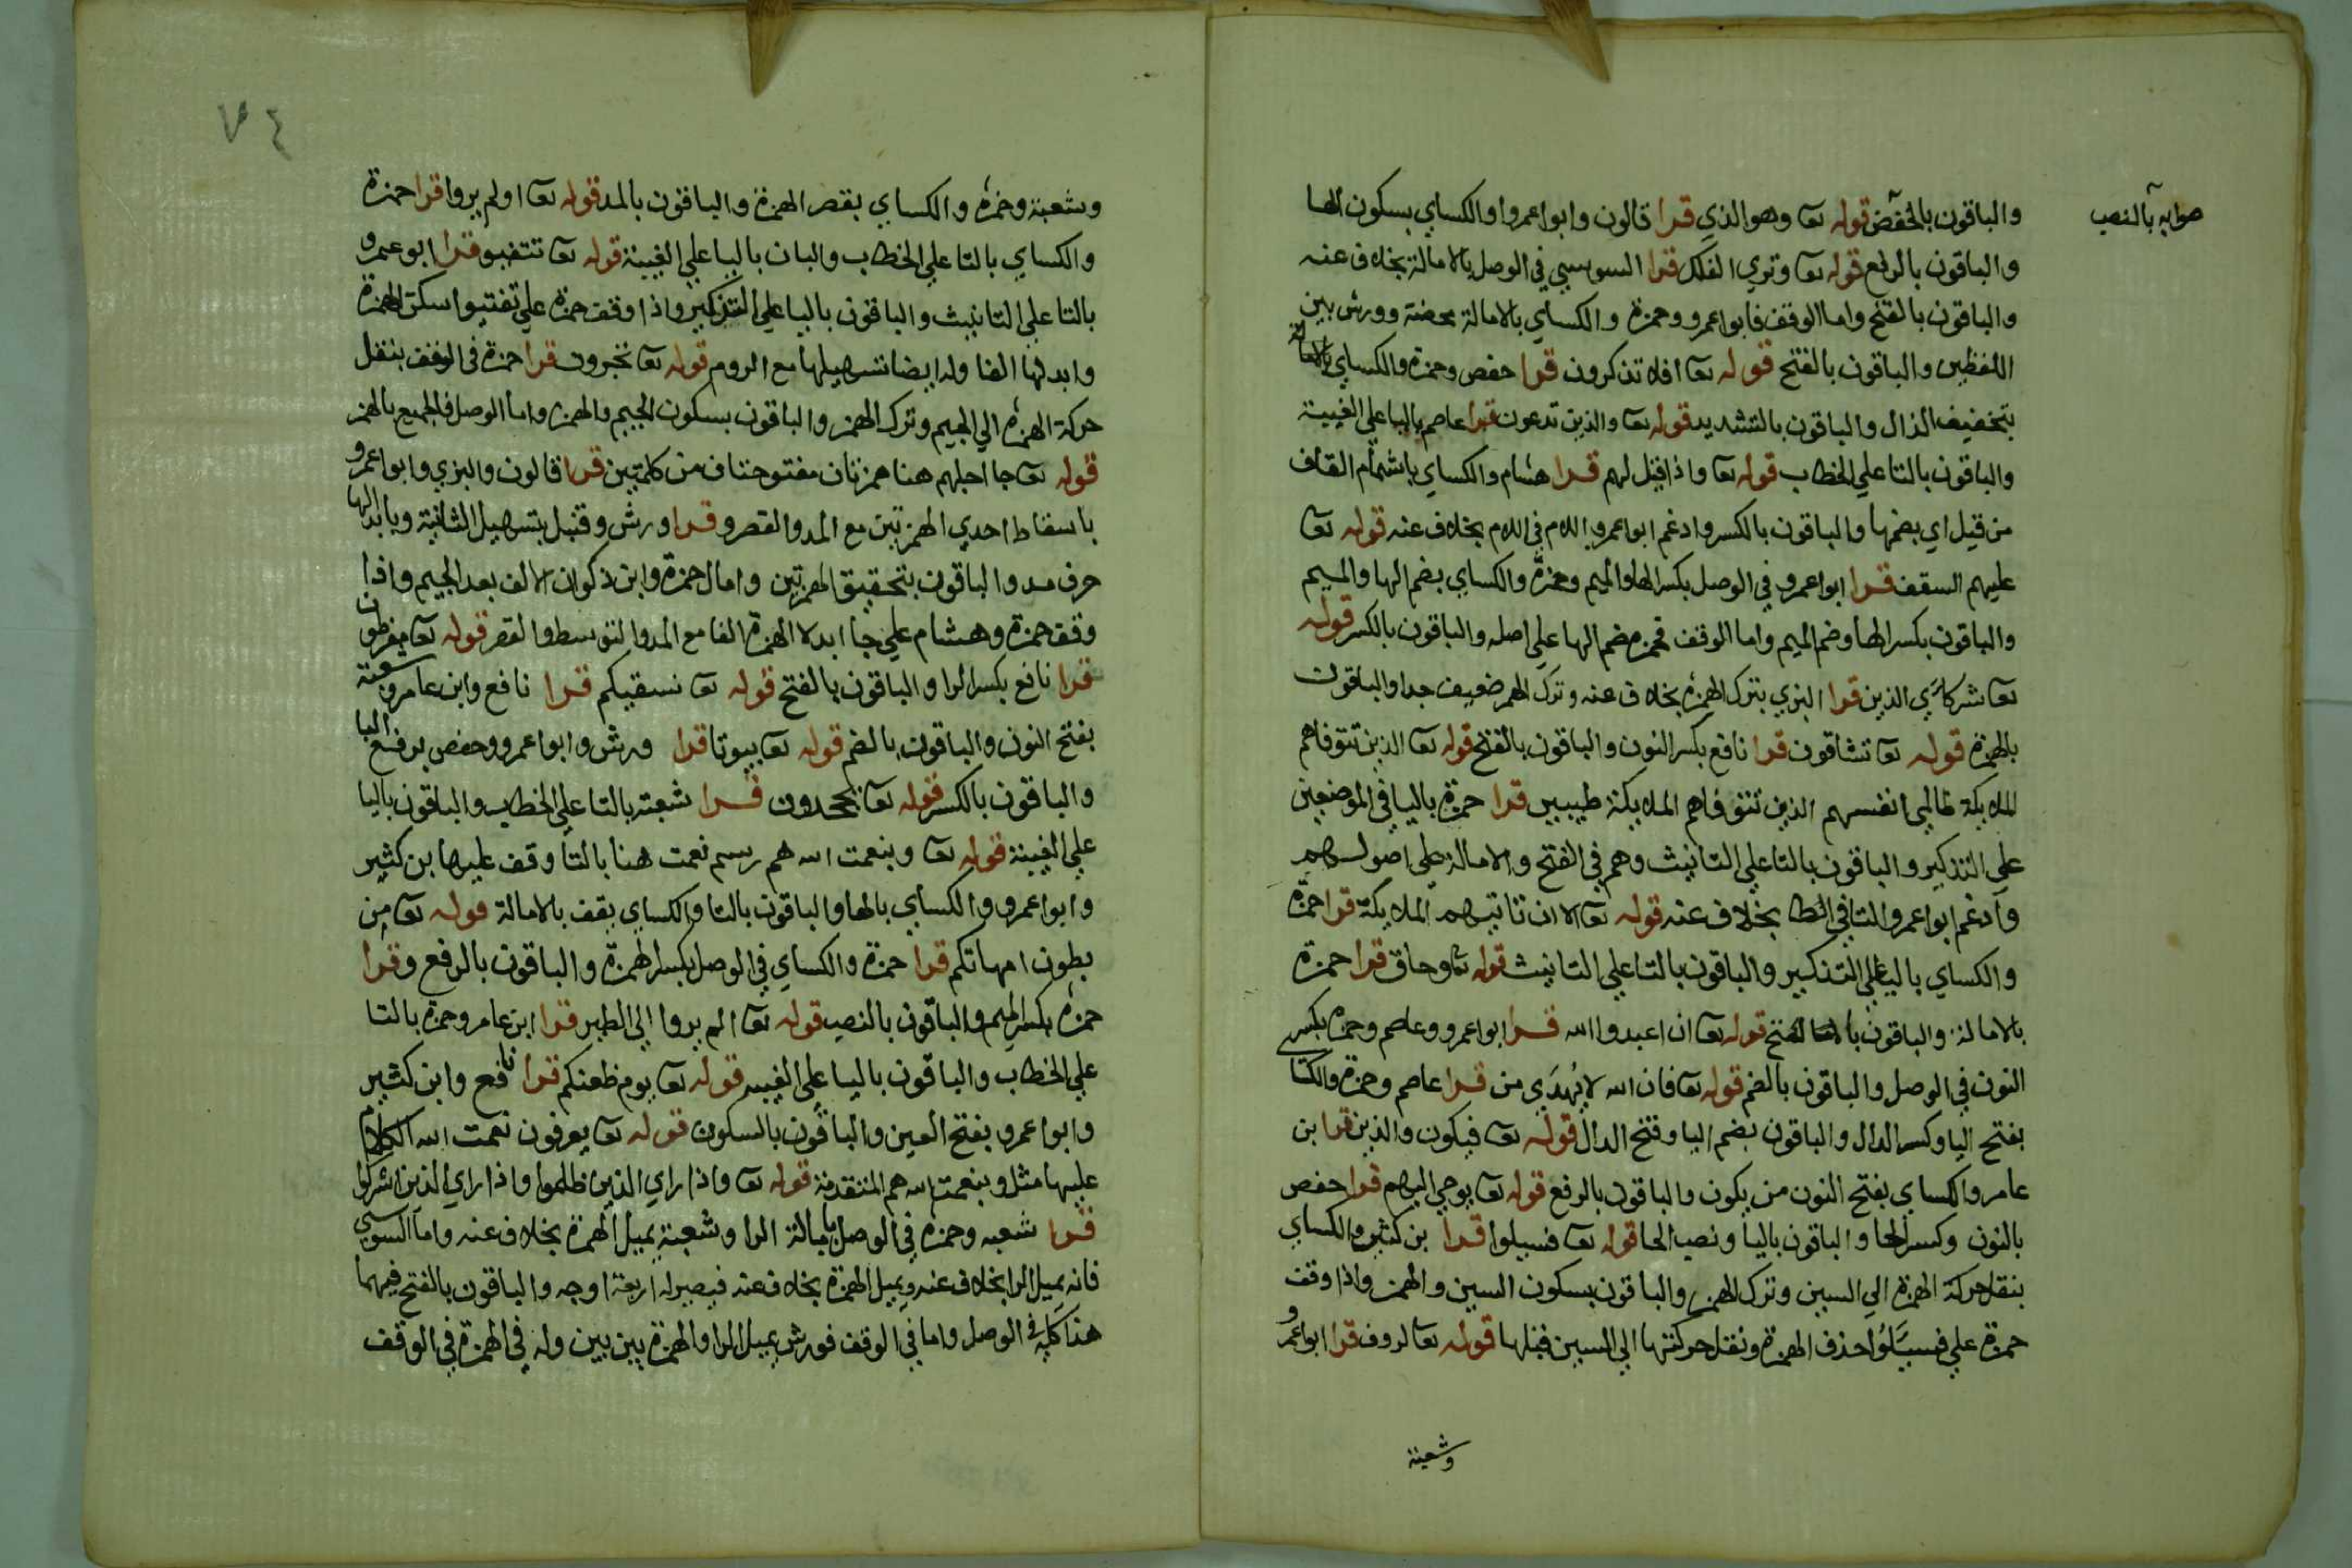 والباقون بالخفض قوله تعا وهو الذي قرا قالون وابوا عمروا والكساي بسكون الها
صوابه بالنصب
والباقون بالرفع قوله تعا وتري الفلك قرا السوسي في الوصل بالامالة بخلاف عنه
والباقون بالفتح واما الوقف فابوا عمرو وحمزة والكساي بالامالة محضة وورش بين
اللفظين والباقون بالفتح قوله تعا افلا تذكرون قرا حفص وحمزة والكساي
بتخفيف الذال والباقون بالتشديد قوله تعا والذين تدعون قرا عاصم باليا علي الغيبة
والباقون بالتا علي الخطاب قوله تعا واذا قيل لهم قرا هشام والكساي باشمام القاف
من قيل اي بضمها والباقون بالكسر وادغم ابوا عمرو اللام في اللام بخلاف عنه قوله تعا
عليهم السقف قرا ابوا عمرو في الوصل بكسر الها والميم وحمزة والكساي بضم الها والميم
والباقون بكسر الها وضم الميم واما الوقف فحمزه بضم الها علي اصله والباقون بالكسر قوله
تعا شركاي الذين قرا البزي بترك الهمزه بخلاف عنه وترك الهمز ضعيف جدا والباقون
بالهمزة قوله تعا تشاقون قرا نافع بكسر النون والباقون بالفتح قوله تعا الذين تتوفاهم
الملايكة ظالمي انفسهم الذين تتوفاهم الملايكة طيبين قرا حمزة باليا في الموضعين
علي التذكير والباقون بالتا علي التانيث وهم في الفتح والامالة علي اصولهم
وادغم ابوا عمرو التا في الظا بخلاف عنه قوله تعا الا ان تاتيهم الملايكة قرا حمزة
والكساي باليا علي التذكير والباقون بالتا علي التانيث قوله تعا وحاق قرا حمزة
بالامالة والباقون بالفتح قوله تعا ان اعبدوا الله قرا ابوا عمرو وعاصم وحمزة بكسر
النون في الوصل والباقون بالضم قوله تعا فان الله لا يهدي من قرا عاصم وحمزة والكسا
بفتح اليا وكسر الدال والباقون بضم اليا وفتح الدال قوله تعا فيكون والذين قرا بن
عامر والكساي بفتح النون من يكون والباقون بالرفع قوله تعا يوحي اليهم قرا حفص
بالنون وكسر الحا والباقون باليا ونصب الحا قوله تعا فسيلوا قرا بن كثير والكساي
بنقل حركة الهمزة الي السين وترك الهمز والباقون بسكون السين والهمز واذا وقف
حمزة علي فسيلوا حذف الهمزة ونقل حركتها الي السين قبلها قوله تعا لروف قرا ابوا عمرو
وشعبة
٧٤
وشعبة وحمزه والكساي بقصر الهمزة والباقون بالمد قوله تعا اولم يروا قرا حمزة
والكساي بالتا علي الخطاب والبان باليا علي الغيبة قوله تعا تتفيو قرا ابو عمرو
بالتا علي التانيث والباقون باليا علي التذكير واذا وقف حمزة علي تفتيوا سكن الهمزة
وابدلها الفا وله ايضا تسهيلها مع الروم قوله تعا تجرون قرا حمزة في الوقف بنقل
حركة الهمزه الي الجيم وترك الهمز والباقون بسكون الجيم والهمزه واما الوصل فالجميع بالهمز
قوله تعا جا اجلهم هنا همزتان مفتوحتان من كلمتين قرا قالون والبزي وابوا عمرو
باسقاط احدي الهمزتين مع المد والقصر وقرا ورش وقنبل بتسهيل الثانية وبابدالها
حرف مد والباقون بتحقيق الهمزتين وامال حمزة وابن ذكوان الالف بعد الجيم واذا
وقف حمزة وهشام علي جا ابدلا الهمزة الفا مع المد والتوسط والقصر قوله تعا مفرطون
قرا نافع بكسر الرا والباقون بالفتح قوله تعا نسقيكم قرا نافع وابن عامر وشعبة
بفتح النون والباقون بالضم قوله تعا بيوتا قرا ورش وابوا عمرو وحفص برفع البا
والباقون بالكسر قوله تعا يجحدون قرا شعبة بالتا علي الخطاب والباقون باليا
علي الغيبة قوله تعا وبنعمت الله هم رسم نعمت هنا بالتا وقف عليها بن كثير
وابوا عمرو والكساي بالها والباقون بالتا والكساي يقف بالامالة قوله تعا من
بطون امهاتكم قرا حمزة والكساي في الوصل بكسر الهمزة والباقون بالرفع وقرا
حمزه بكسر الميم والباقون بالنصب قوله تعا الم يروا الي الطير قرا ابن عامر وحمزة بالتا
علي الخطاب والباقون باليا علي الغيبه قوله تعا يوم ظعنكم قرا نافع وابن كثير
وابوا عمرو بفتح العين والباقون بالسكون قوله تعا يعرفون نعمت الله الكلام
عليها مثل وبنعمت الله هم المتقدمة قوله تعا واذا راي الذين ظلموا واذا راي الذين اشركوا
قرا شعبه وحمزه في الوصل بامالة الرا وشعبة يميل الهمزة بخلاف عنه واما السوسي
فانه يميل الرا بخلاف عنه ويميل الهمزة بخلاف عنه فيصير له اربعة اوجه والباقون بالفتح فيهما
هذا كله في الوصل واما في الوقف فورش يميل الرا والهمزة بين بين وله في الهمزة في الوقف